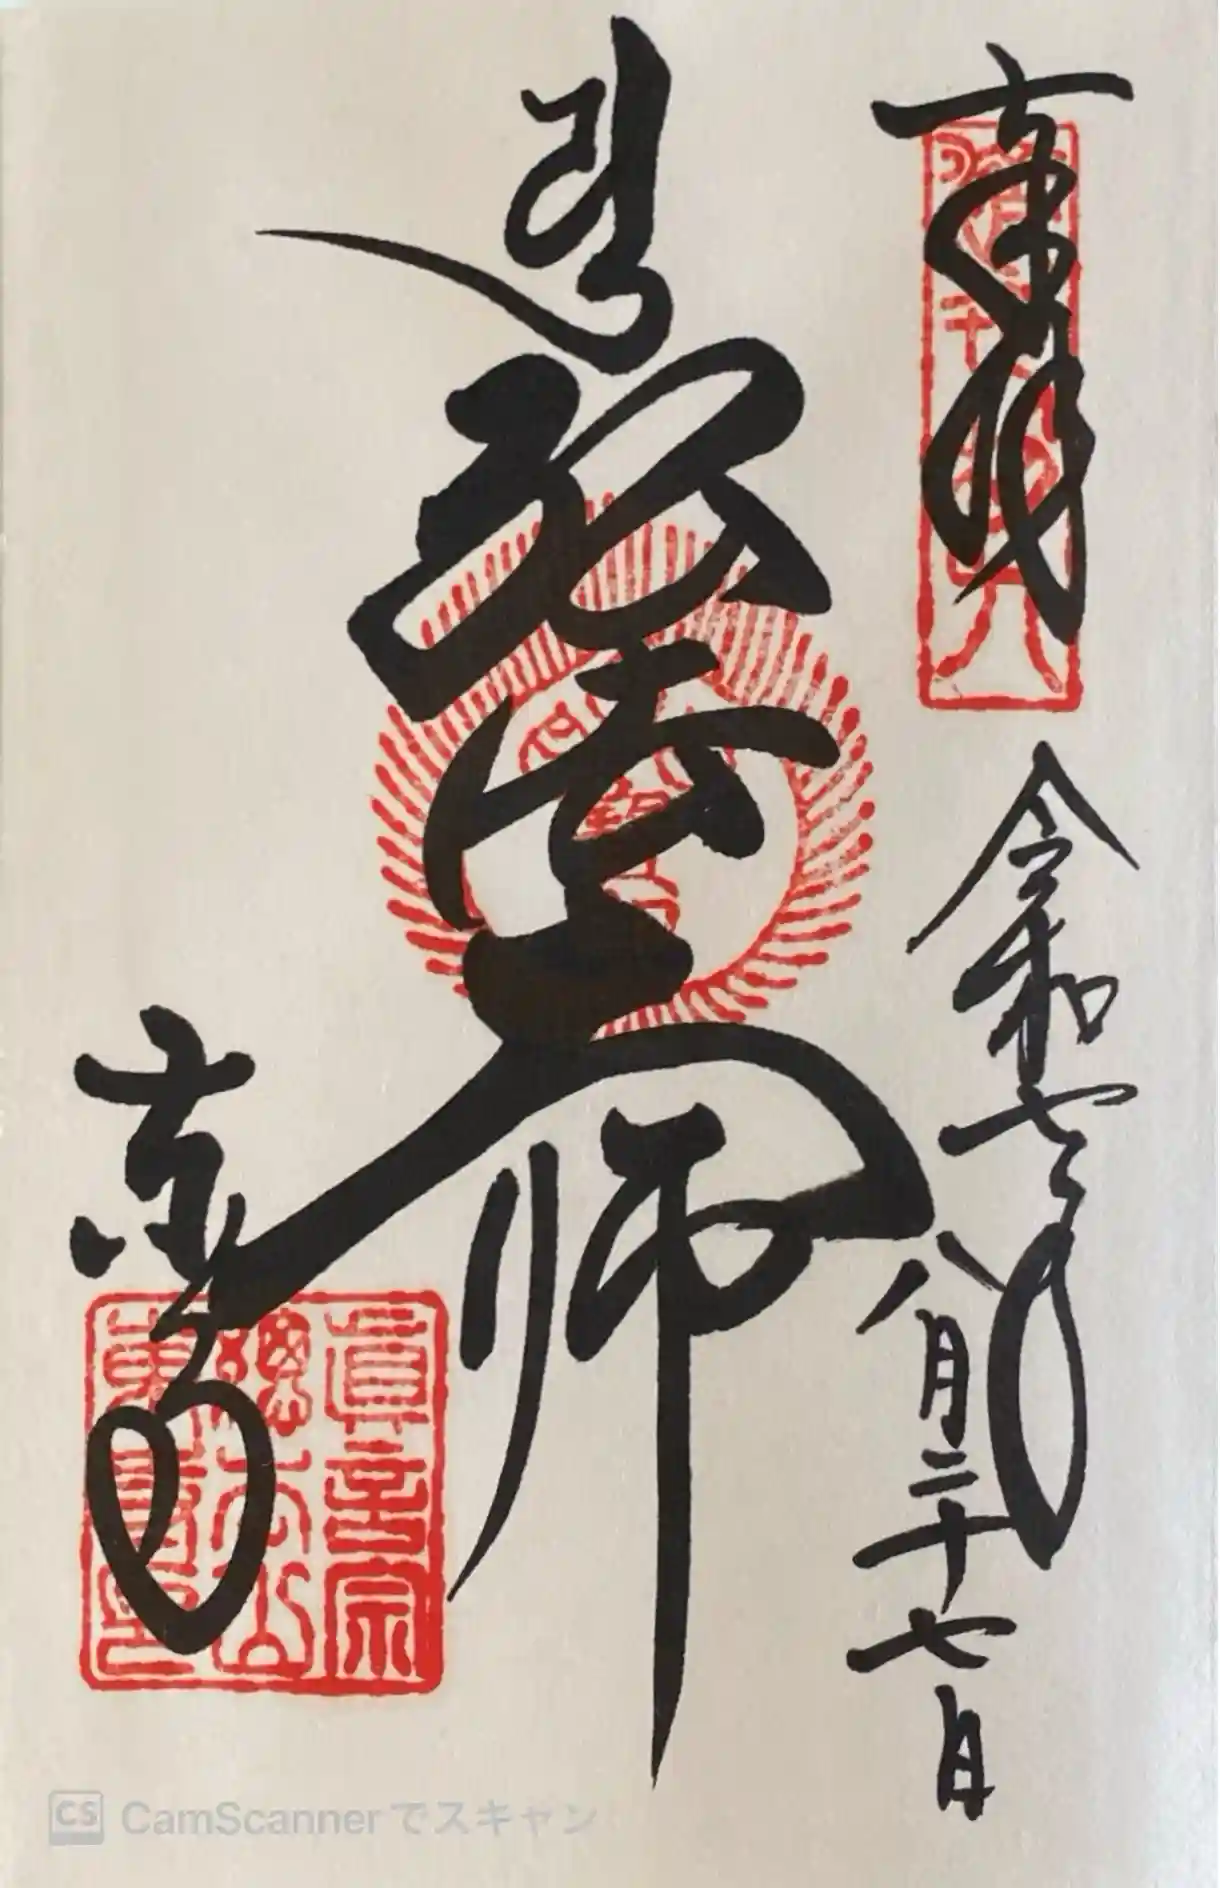 奉拝
令和七年
八月二十七日
弘法大師
東寺
真言宗
總本山
東寺印
CS CamScannerでスキャン